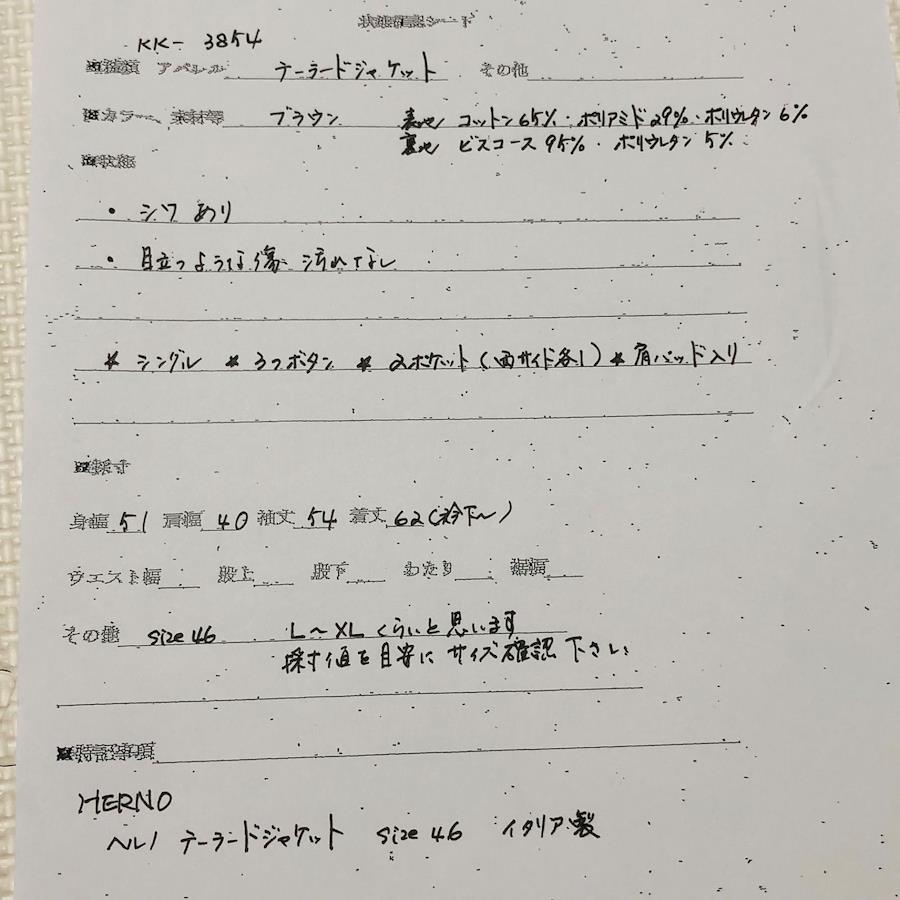 状態確認シート
KK-3854
■種類 アパレル テーラードジャケット その他
■カラー、素材等 ブラウン 表地 コットン65%・ポリアミド29%・ポリウレタン6%
裏地 ビスコース95%・ポリウレタン5%
■状態
・シワあり
・目立つような傷、汚れなし
* シングル * 3つボタン * 2ポケット(両サイド各1) * 肩パッド入り
■採寸
身幅 51 肩幅 40 袖丈 54 着丈 62(衿下〜)
ウエスト幅 股上 股下 わたり 裾幅
その他 size46 L〜XLくらいと思います
採寸値を目安にサイズ確認下さい
■特記事項
HERNO
ヘルノ テーラードジャケット size46 イタリア製